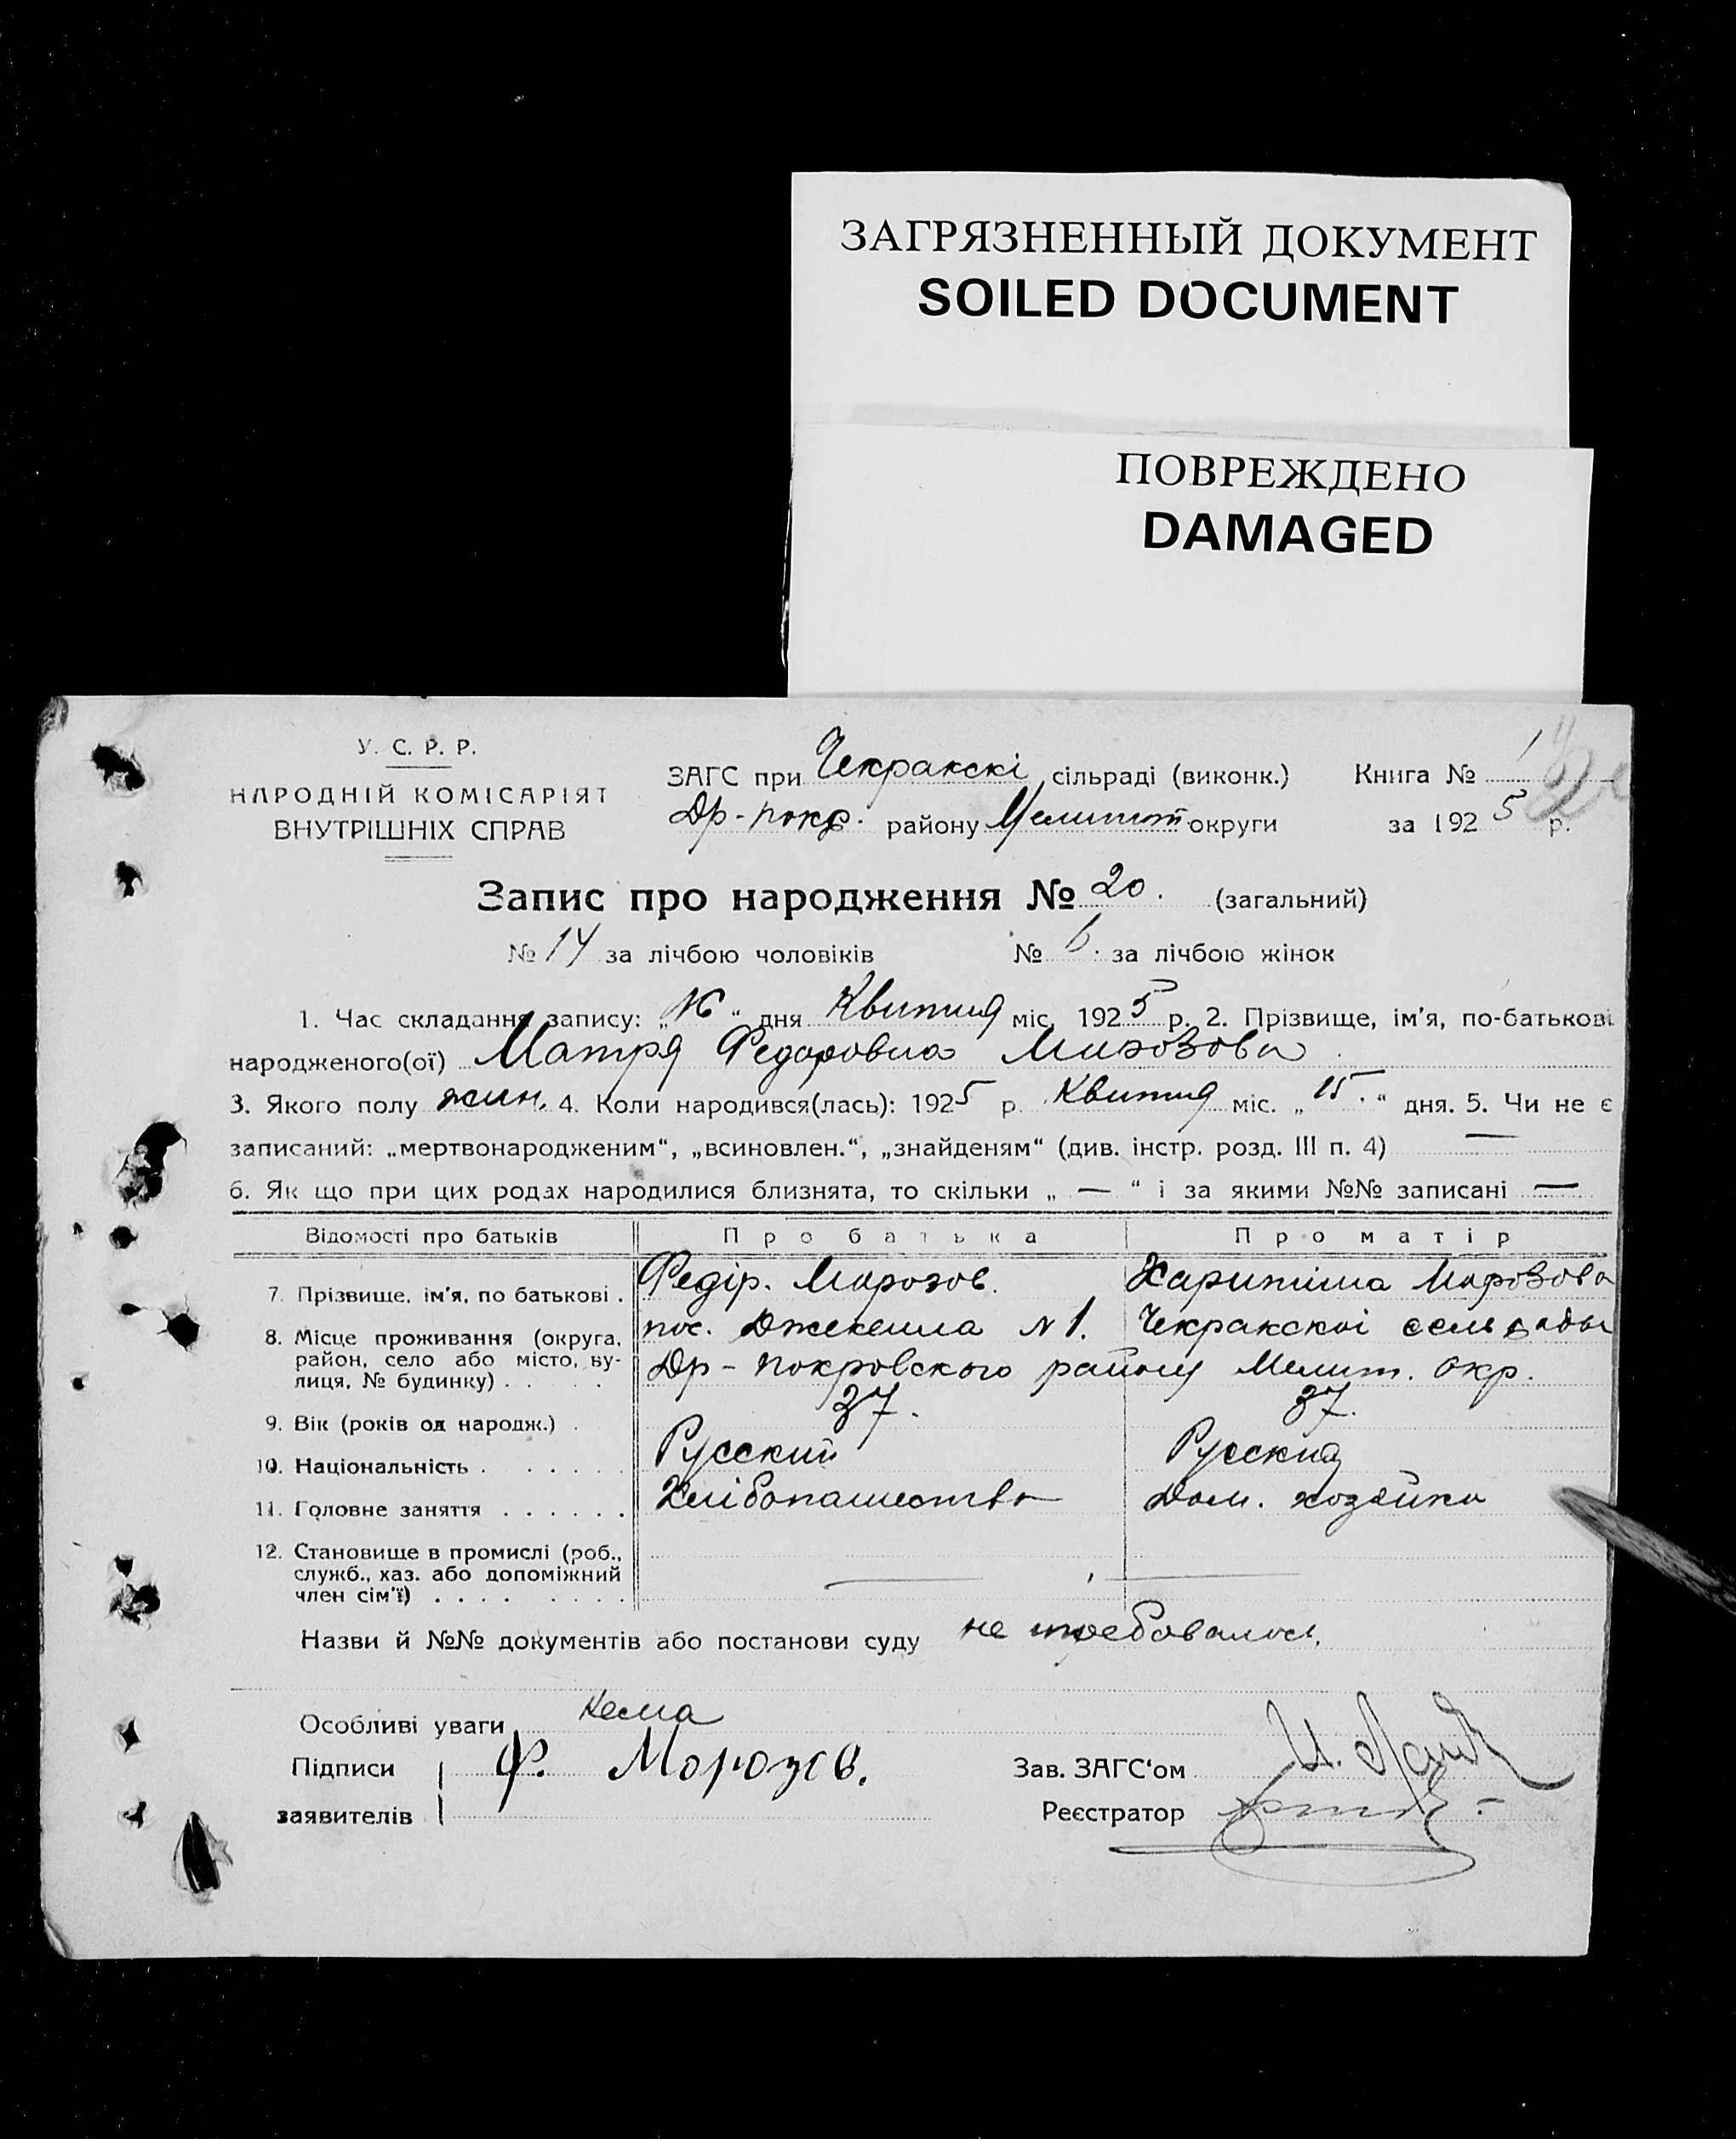 ЗАГРЯЗНЕННЫЙ ДОКУМЕНТ
SOILED DOCUMENT
ПОВРЕЖДЕНО
DAMAGED
У. С. Р. Р.
НАРОДНІЙ КОМІСАРІЯТ
ВНУТРІШНІХ СПРАВ
ЗАГС при Чекракскі сільраді (виконк.) Книга № 1
Др-покр. району Мелитоп округи за 1925 р.
Запис про народження № 20. (загальний)
№ 14 за лічбою чоловіків № 6. за лічбою жінок
1. Час складання запису: „16“ дня Квитня міс. 1925 р. 2. Прізвище, ім'я, по-батькові
народженого(ої) Матря Федоровна Морозова
3. Якого полу жин. 4. Коли народився(лась): 1925 р. Квитня міс. „15.“ дня. 5. Чи не є
записаний: „мертвонародженим“, „всиновлен.“, „знайденям“ (див. інстр. розд. III п. 4) —
6. Як що при цих родах народилися близнята, то скільки „ — “ і за якими №№ записані —
Відомості про батьків Про батька Про матір
7. Прізвище, ім'я, по батькові . Федір. Морозов. Харитина Морозова
8. Місце проживання (округа, район, село або місто, вулиця, № будинку) . . . . . пос. Джекелна № 1. Чекракскоі сельрады
Др-покровского району Мелит. окр.
9. Вік (років од народж.) . 37. 37.
10. Національність . . . . . . Русский Русския
11. Головне заняття . . . . . . Хлібопашество Дом. хозяйка
12. Становище в промислі (роб.,
служб., хаз. або допоміжний
член сім'ї) . . . . . . . . — —
Назви й №№ документів або постанови суду не требовалось.
Особливі уваги Нема
Підписи Ф. Морозов. Зав. ЗАГС'ом
заявителів Реєстратор